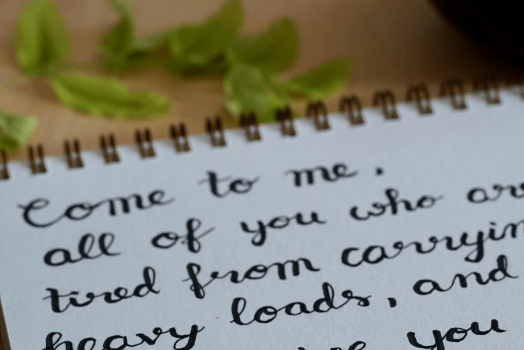 Come to me,
all of you who are
tired from carrying
heavy loads, and
you